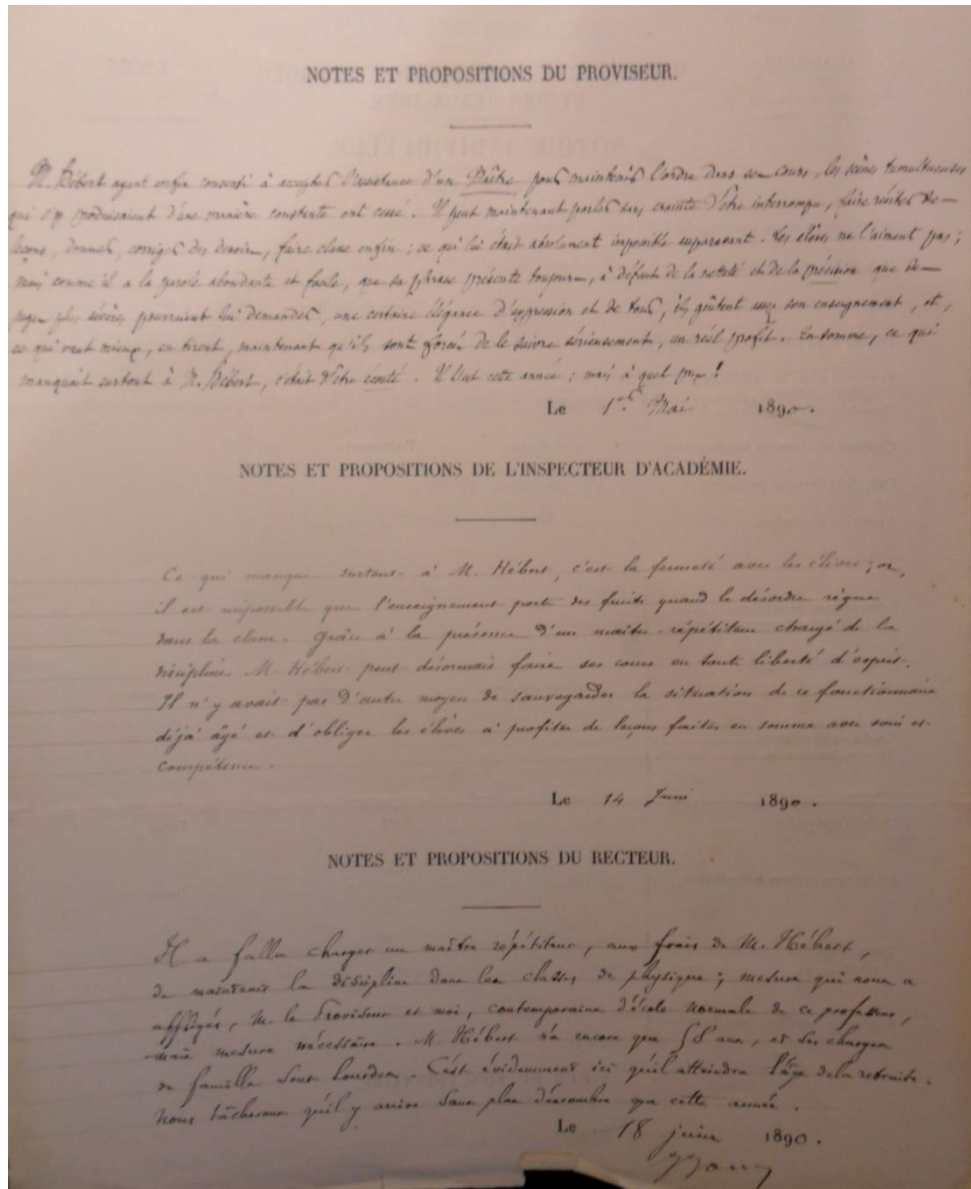 NOTES ET PROPOSITIONS DU PROVISEUR.
M. Hébert ayant enfin consenti à accepter l'assistance d'un Maître pour maintenir l'ordre dans son cours, les scènes tumultueuses
qui s'y produisaient d'une manière constante ont cessé. Il peut maintenant parler sans crainte d'être interrompu, faire réciter des
leçons, donner, corriger des devoirs, faire classe enfin ; ce qui lui était absolument impossible auparavant. Les élèves ne l'aiment pas ;
mais comme il a la parole abondante et facile, que sa phrase présente toujours, à défaut de la netteté et de la précision que des
juges plus sévères pourraient lui demander, une certaine élégance d'expression et de tour, ils goûtent assez son enseignement, et,
ce qui vaut mieux, en tirent, maintenant qu'ils sont forcés de le suivre sérieusement, un réel profit. En somme, ce qui
manquait surtout à M. Hébert, c'était d'être écouté. Il l'est cette année ; mais à quel prix !
Le 1er Mai 1890.
NOTES ET PROPOSITIONS DE L'INSPECTEUR D'ACADÉMIE.
Ce qui manque surtout à M. Hébert, c'est la fermeté avec les élèves ; or,
il est impossible que l'enseignement porte des fruits quand le désordre règne
dans la classe. Grâce à la présence d'un maître-répétiteur chargé de la
discipline M. Hébert peut désormais faire ses cours en toute liberté d'esprit.
Il n'y avait pas d'autre moyen de sauvegarder la situation de ce fonctionnaire
déjà âgé et d'obliger les élèves à profiter de leçons faites en somme avec soin et
compétence.
Le 14 Juin 1890.
NOTES ET PROPOSITIONS DU RECTEUR.
Il a fallu charger un maître répétiteur, aux frais de M. Hébert,
de maintenir la discipline dans les classes de physique ; mesure qui nous a
affligés, M. le Proviseur et moi, contemporains d'école normale de ce professeur,
mais mesure nécessaire. M. Hébert n'a encore que 58 ans, et ses charges
de famille sont lourdes. C'est évidemment ici qu'il atteindra l'âge de la retraite.
Nous tâcherons qu'il y arrive sans plus d'encombre que cette année.
Le 18 juin 1890.